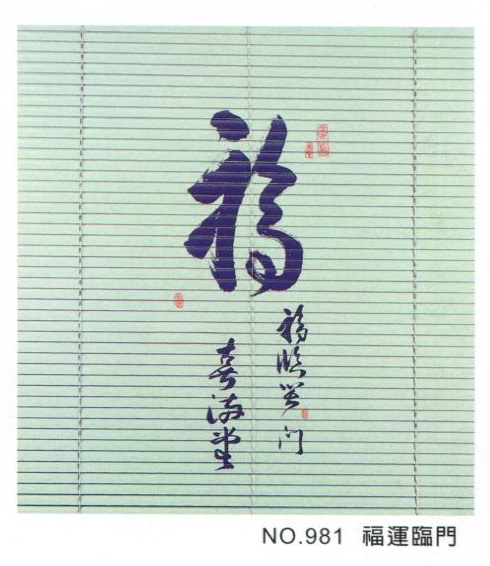 福
福臨門
喜滿堂
NO.981 福運臨門